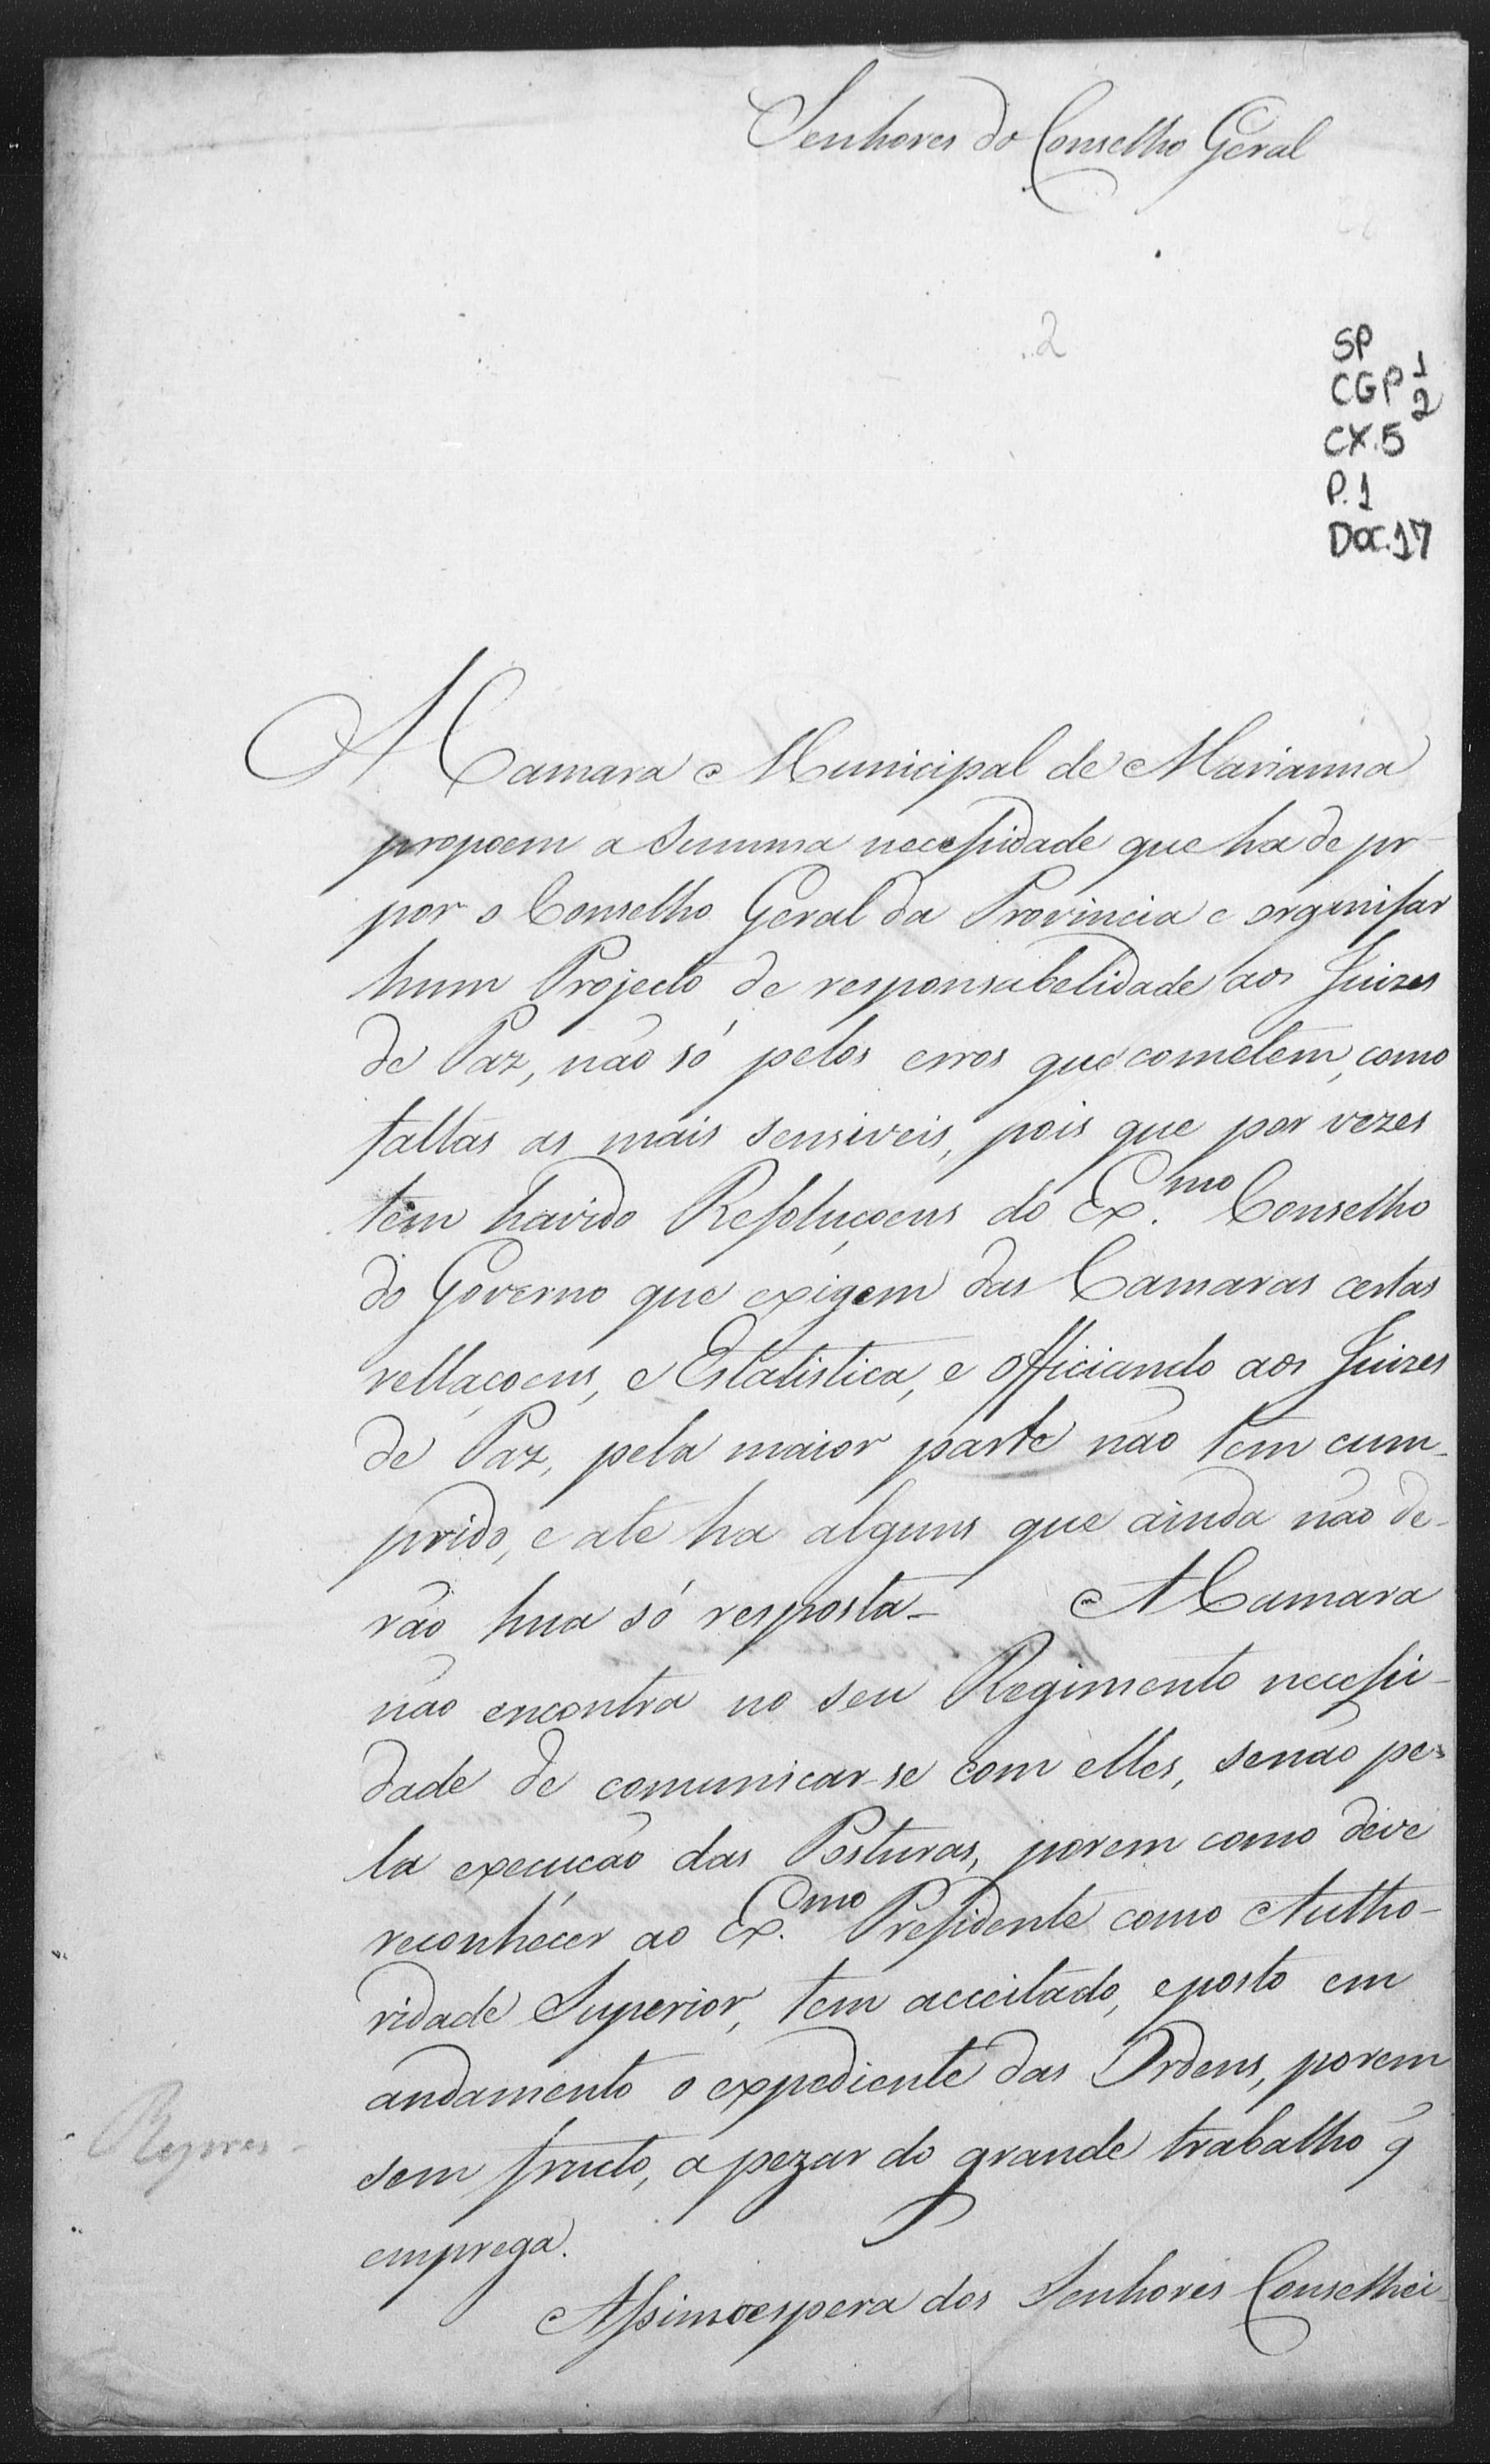 Senhores do Conselho Geral
2
SP
CGP 1 2
CX.5
P.1
DOC.17
A Camara Municipal de Marianna
propoem a summa necessidade que ha de pr
por o Conselho Geral da Provincia e organisar
hum Projecto de responsabelidade aos Juizes
de Paz, não só pelos erros que cometem, como
faltas as mais sensiveis, pois que por vezes
tem havido Resoluçoens do Ex.mo Conselho
do Governo que exigem das Camaras certas
rellaçoens, e Estatistica, e officiando aos Juizes
de Paz, pela maior parte não tem cum-
prido, e ate ha alguns que ainda não de-
rão hua só resposta- A Camara
não encontra no seu Regimento necessi-
dade de comunicar-se com elles, senão pe-
la execucão das Posturas, porem como deve
reconhecer ao Ex.mo Presidente como Autho-
ridade Superior, tem acceitado, e posto em
andamento o expediente das Ordens, porem
sem fructo, a pezar do grande trabalho q̃
emprega.
Assim o espera dos Senhores Conselhei